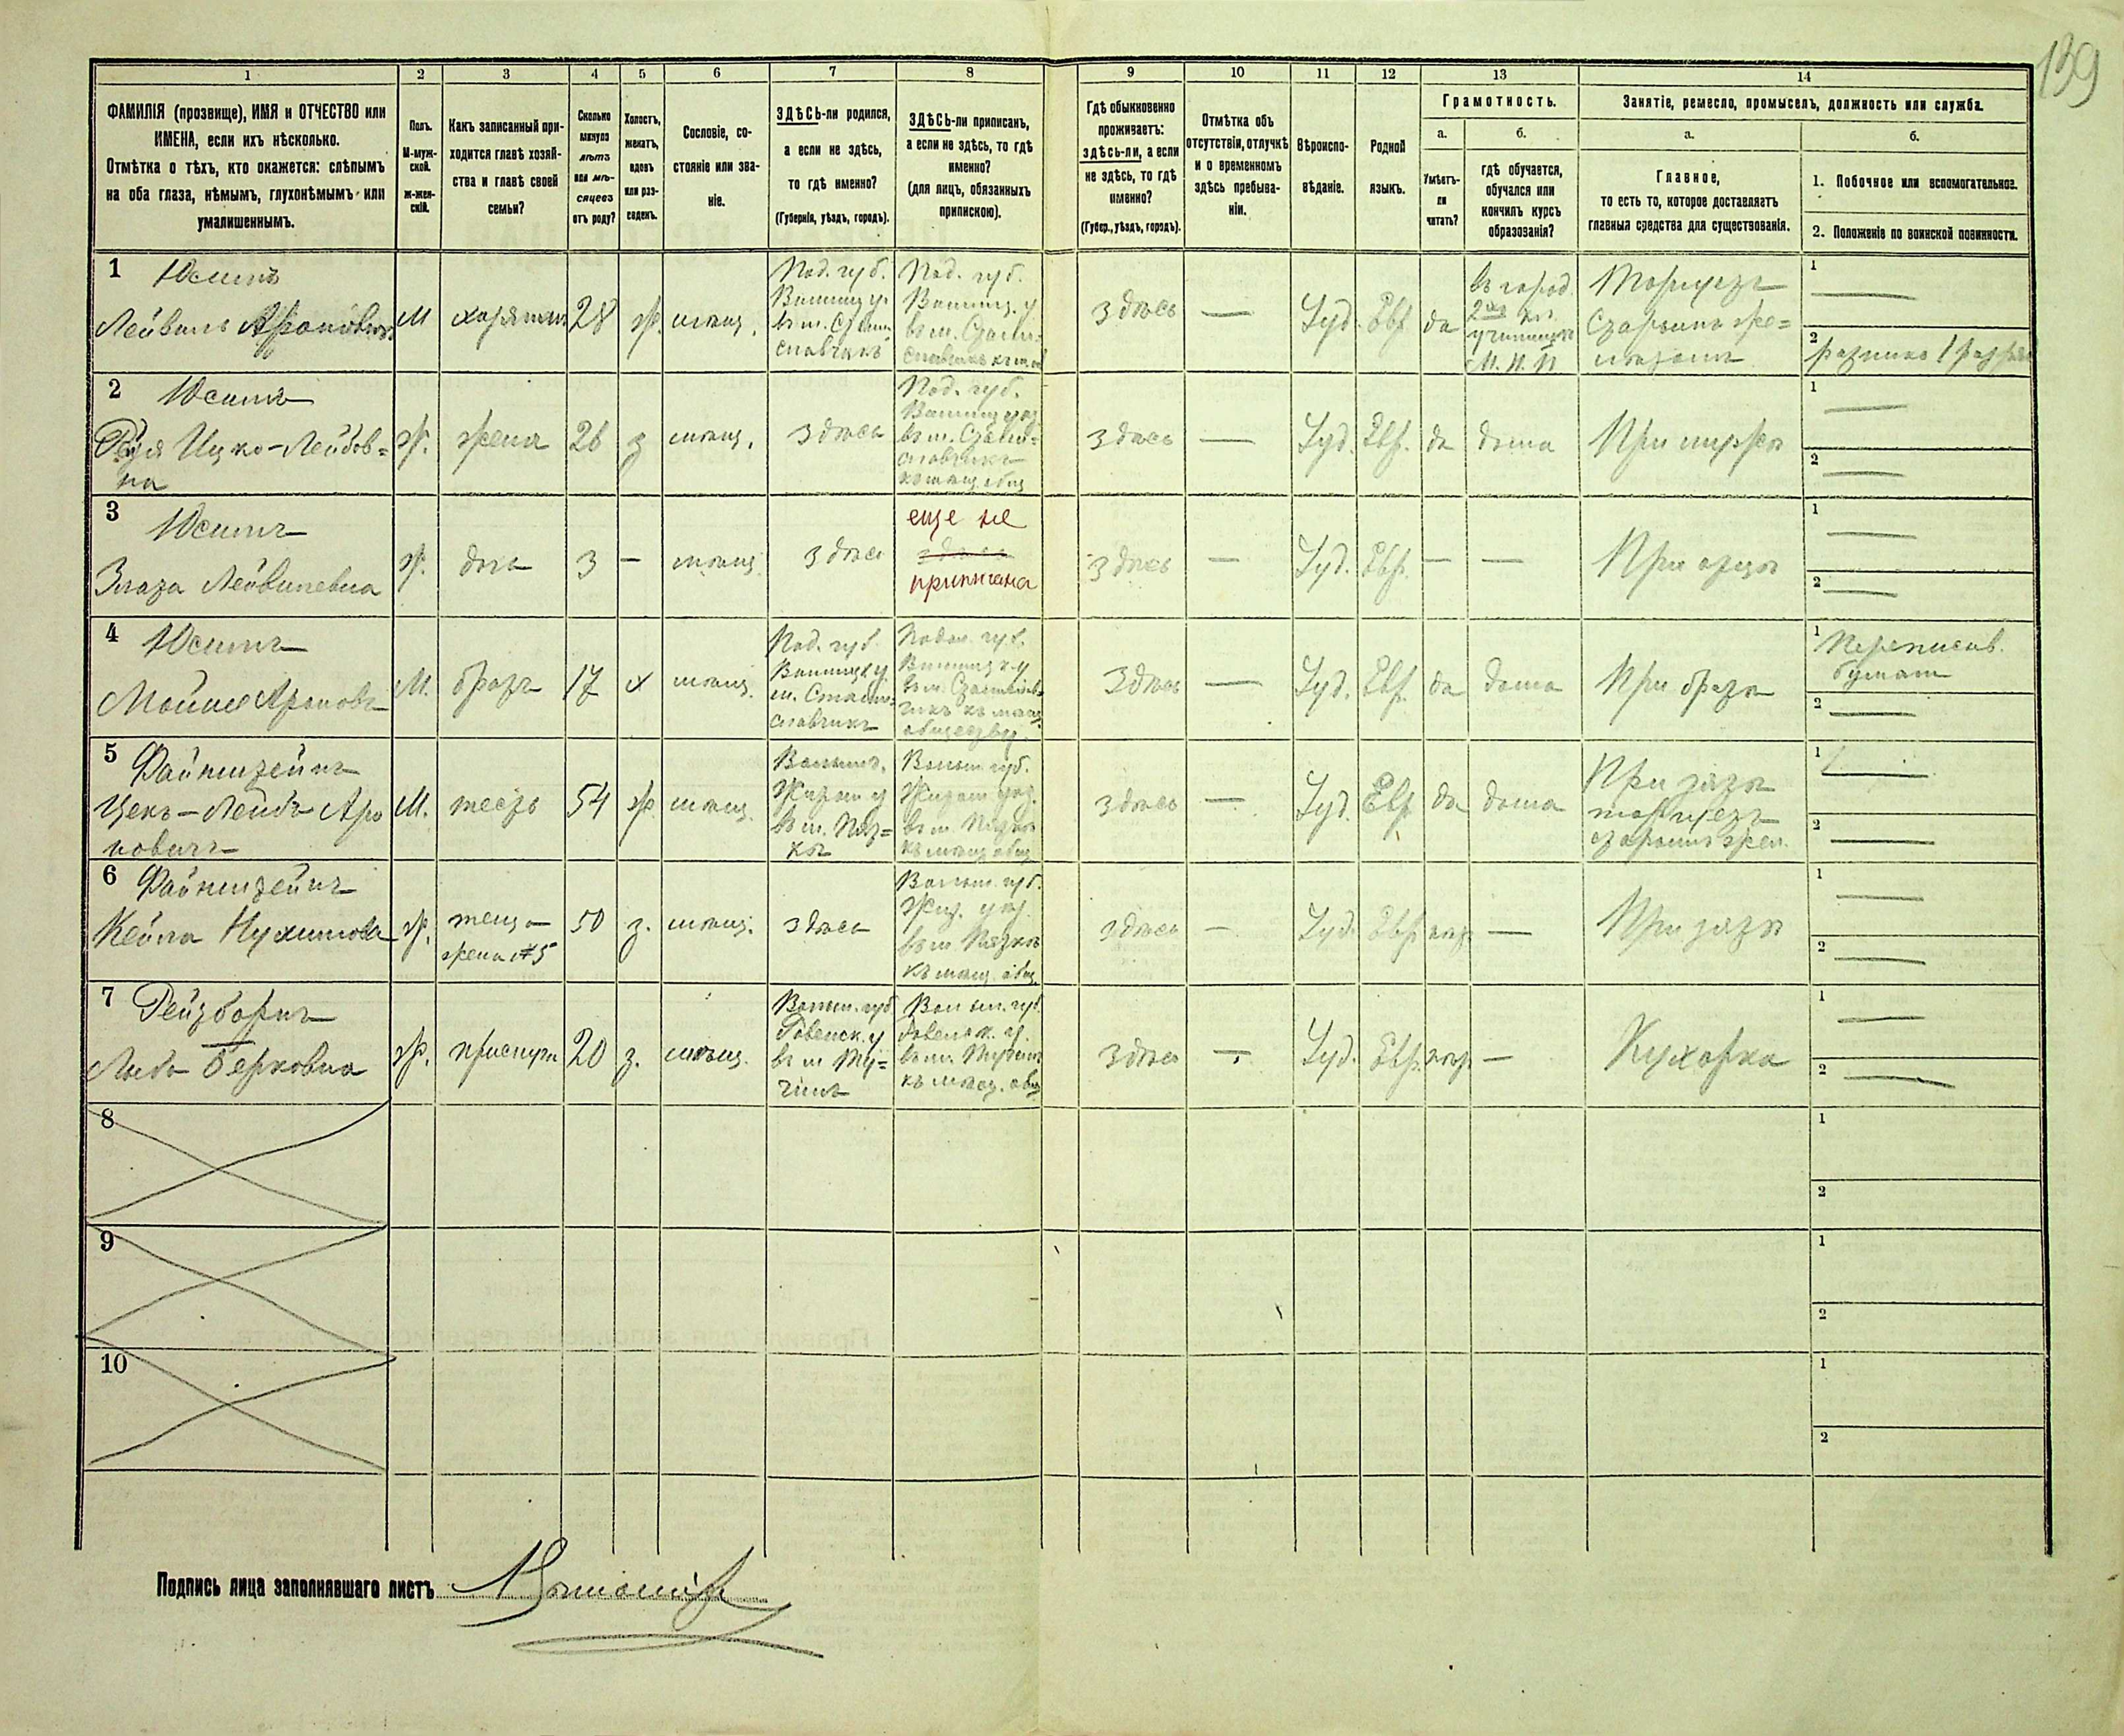 139
1 2 3 4 5 6 7 8 9 10 11 12 13 14
ФАМИЛІЯ (прозвище), ИМЯ и ОТЧЕСТВО или
ИМЕНА, если ихъ нѣсколько.
Отмѣтка о тѣхъ, кто окажется: слѣпымъ
на оба глаза, нѣмымъ, глухонѣмымъ или
умалишеннымъ.
Полъ.
М-муж-
ской.
ж-жен-
скій.
Какъ записанный при-
ходится главѣ хозяй-
ства и главѣ своей
семьи?
Сколько
минуло
лѣтъ
или мѣ-
сяцевъ
отъ роду?
Холостъ,
женатъ,
вдовъ
или раз-
веденъ.
Сословіе, со-
стояніе или зва-
ніе.
ЗДѢСЬ-ли родился,
а если не здѣсь,
то гдѣ именно?
(Губернія, уѣздъ, городъ).
ЗДѢСЬ-ли приписанъ,
а если не здѣсь, то гдѣ
именно?
(для лицъ, обязанныхъ
припискою).
Гдѣ обыкновенно
проживаетъ:
здѣсь-ли, а если
не здѣсь, то гдѣ
именно?
(Губер., уѣздъ, городъ).
Отмѣтка объ
отсутствіи, отлучкѣ
и о временномъ
здѣсь пребыва-
ніи.
Вѣроиспо-
вѣданіе.
Родной
языкъ.
Грамотность.
а.
Умѣетъ-
ли
читать?
б.
гдѣ обучается,
обучался или
кончилъ курсъ
образованія?
Занятіе, ремесло, промыселъ, должность или служба.
а.
Главное,
то есть то, которое доставляетъ
главныя средства для существованія.
б.
1. Побочное или вспомогательное.
2. Положеніе по воинской повинности.
1 Юсимъ
Лейвиль Ароновичъ
М
хозяинъ
28
ж.
мѣщ.
Под. губ.
Винниц. у.
въ м. Стани-
славчикъ
Под. губ.
Винниц. у.
въ м. Стани-
здѣсь
—
Іуд.
Евр.
да
въ город.
2хъ кл.
училищѣ
М. Н. П.
Торгуетъ
старымъ же-
лѣзомъ
1 —
2
ратникъ 1 разряд
2 Юсимъ
Рейзя Ицко-Лейбов-
на
ж.
жена
26
з
мѣщ.
здѣсь
Под. губ.
Винниц. уѣз.
въ м. Стани-
славчикъ
къ мѣщ. общ
здѣсь
—
Іуд.
Евр.
да
дома
При мужѣ
1 —
2 —
3 Юсимъ
Злата Лейвилевна
ж.
дочь
3
—
мѣщ
здѣсь
еще не
здѣсь
приписана
здѣсь
—
Іуд.
Евр.
—
—
При отцѣ
1 —
2 —
4 Юсимъ
Мойше Ароновъ
М.
братъ
17
х
мѣщ.
Под. губ.
Винницк. у.
м. Стани-
славчикъ
Подол. губ.
Винницк. у
въ м. Станислав-
чикъ къ мѣщ.
обществу
здѣсь
—
Іуд.
Евр.
да
дома
При братѣ
1 Переписыв.
бумаги
2 —
5 Файнштейнъ
Цекъ-Лейбъ Аро
новичъ
М.
тесть
54
ж.
мѣщ.
Волынс.
Житом у
въ м. Пят-
кѣ
Волын губ.
Житом уѣз.
въ м. Пяткѣ
къ мѣщ. общ
здѣсь
—
Іуд.
Евр.
да
дома
При зятѣ
торгуетъ
старымъ жел.
1 —
2 —
6 Файнштейнъ
Кейла Нухимова
ж.
теща
жена №5
50
з.
мѣщ.
здѣсь
Волын. губ.
Жит. уѣз.
въ м Пяткѣ
къ мѣщ. общ
здѣсь
—
Іуд.
Евр.
негр.
—
При зятѣ
1 —
2 —
7 Рейзборнъ
Люба Берковна
ж.
прислуга
20
з.
мѣщ.
Волын. губ
Ровенск. у
въ м Ту-
чинѣ
Волын. губ.
Ровенск. у.
въ м. Тучинѣ
къ мѣщ. общ
здѣсь
—
Іуд.
Евр.
негр.
—
Кухарка
1 —
2 —
8
1
2
9
1
2
10
1
2
Подпись лица заполнявшаго листъ